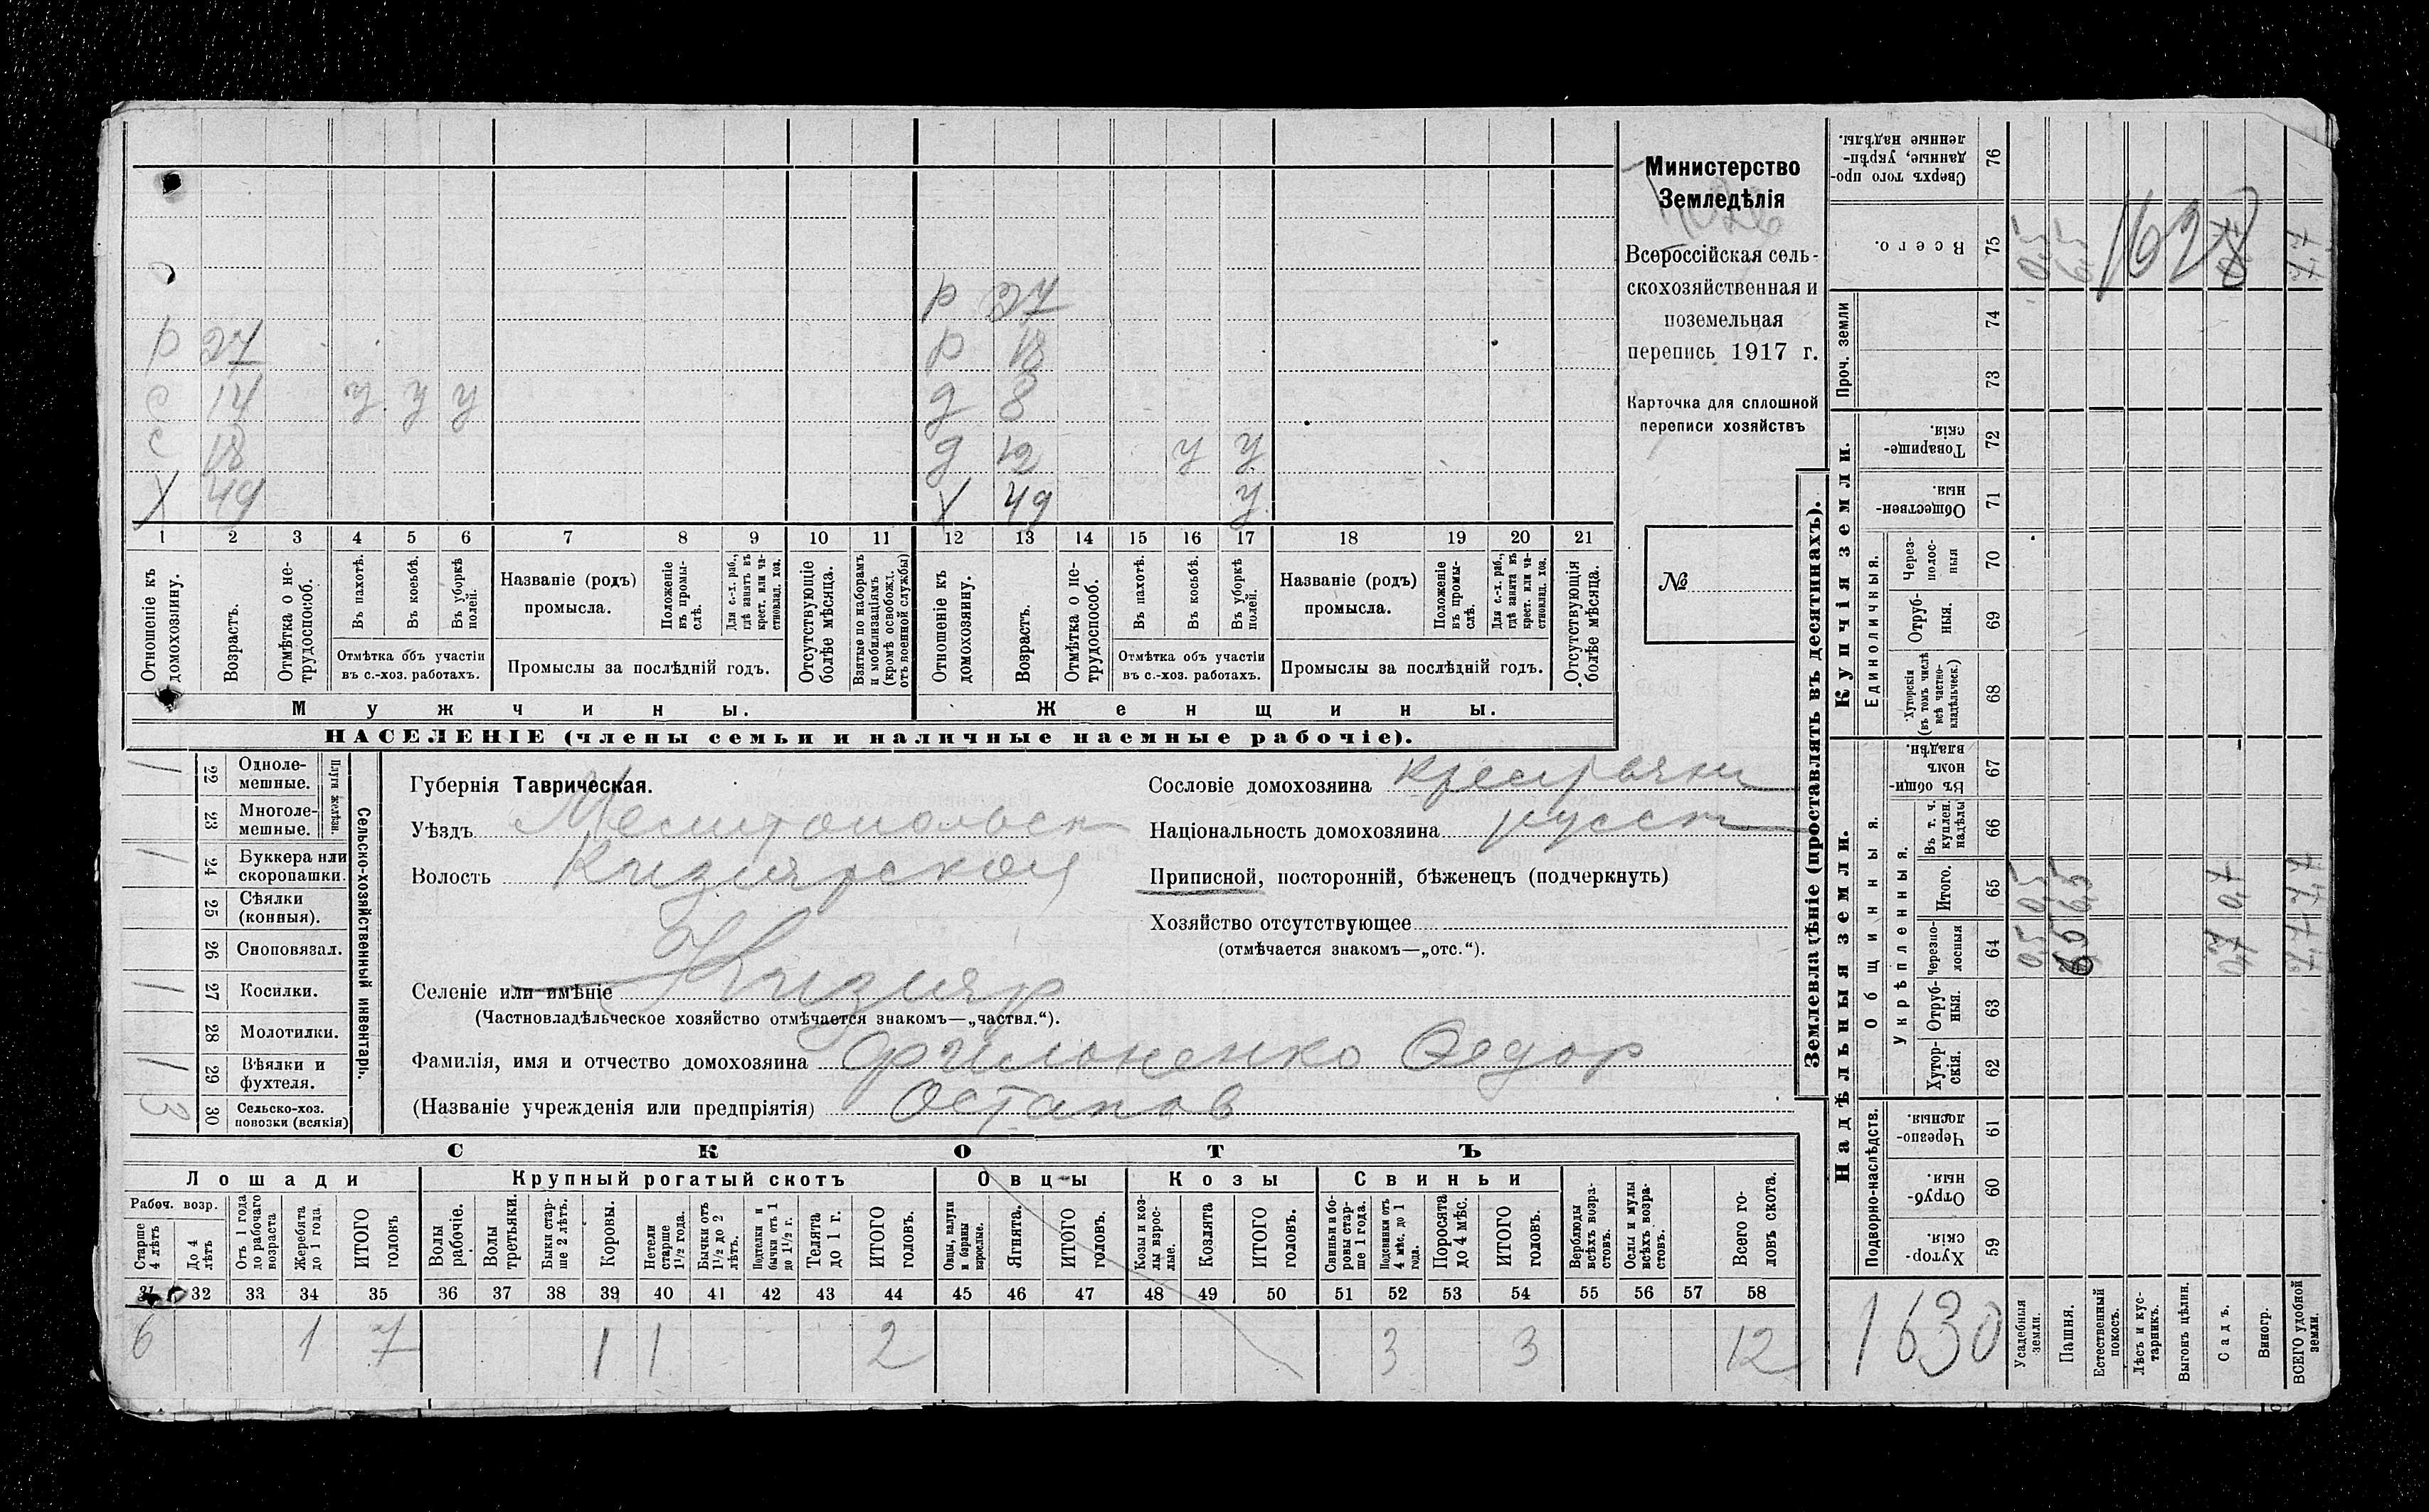 Министерство
Земледѣлія
Всероссійская сель-
скохозяйственная и
поземельная
перепись 1917 г.
Карточка для сплошной
переписи хозяйствъ
№
р 27
р 27 р 18
с 14 у у у д 8
с 18 д 12 у у
Х 49 Х 49 у
1 2 3 4 5 6 7 8 9 10 11 12 13 14 15 16 17 18 19 20 21
Отношеніе къ домохозяину.
Возрастъ.
Отмѣтка о не-трудоспособ.
Въ пахотѣ.
Въ косьбѣ.
Въ уборкѣ полей.
Отмѣтка объ участіи
въ с.-хоз. работахъ.
Названіе (родъ)
промысла.
Положеніе въ промы-слѣ.
Для с.-х. раб., гдѣ занятъ въ крест. или ча-стновлад. хоз.
Промыслы за послѣдній годъ.
Отсутствующіе болѣе мѣсяца.
Взятые по наборамъ и мобилизаціямъ (кромѣ освобожд. отъ военной службы)
Отношеніе къ домохозяину.
Возрастъ.
Отмѣтка о не-трудоспособ.
Въ пахотѣ.
Въ косьбѣ.
Въ уборкѣ полей.
Отмѣтка объ участіи
въ с.-хоз. работахъ.
Названіе (родъ)
промысла.
Положеніе въ промы-слѣ.
Для с.-х. раб., гдѣ занята въ крест. или ча-стновлад. хоз.
Промыслы за послѣдній годъ.
Отсутствующія болѣе мѣсяца.
Мужчины. Женщины.
НАСЕЛЕНІЕ (члены семьи и наличные наемные рабочіе).
Сельско-хозяйственный инвентарь.
Плуги желѣзн.
1 22 Однолемешные.
23 Многолемешные.
1 24 Буккера или скоропашки.
25 Сѣялки (конныя).
26 Сноповязал.
1 27 Косилки.
28 Молотилки.
1 29 Вѣялки и фухтеля.
3 30 Сельско-хоз. повозки (всякія)
Губернія Таврическая.
Уѣздъ Мелитопольск
Волость Кизиярской
Селеніе или имѣніе Кизияр
(Частновладѣльческое хозяйство отмѣчается знакомъ—„частвл.“).
Фамилія, имя и отчество домохозяина Филоненко Федор
(Названіе учрежденія или предпріятія) Остапов
Сословіе домохозяина крестьянин
Національность домохозяина русск
Приписной, посторонній, бѣженецъ (подчеркнуть)
Хозяйство отсутствующее
(отмѣчается знакомъ—„отс.“).
СКОТЪ
Лошади Крупный рогатый скотъ Овцы Козы Свиньи
Рабоч. возр.
Старше 4 лѣтъ
До 4 лѣтъ
Отъ 1 года до рабочаго возраста
Жеребята до 1 года.
ИТОГО головъ
Волы рабочіе.
Волы третьяки.
Быки стар-ше 2 лѣтъ.
Коровы.
Нетели старше 1½ года.
Бычки отъ 1½ до 2 лѣтъ.
Подтелки и бычки отъ 1 до 1½ г.
Телята до 1 г.
ИТОГО головъ.
Овцы, валухи и бараны взрослые.
Ягнята.
ИТОГО головъ.
Козы и коз-лы взрос-лые.
Козлята
ИТОГО головъ.
Свиньи и бо-ровы стар-ше 1 года.
Подсвинки отъ 4 мѣс. до 1 года.
Поросята до 4 мѣс.
ИТОГО головъ.
Верблюды всѣхъ возра-стовъ.
Ослы и мулы всѣхъ возра-стовъ.
Всего го-ловъ скота.
31 32 33 34 35 36 37 38 39 40 41 42 43 44 45 46 47 48 49 50 51 52 53 54 55 56 57 58
6 1 7 1 1 2 3 3 12
Землевладѣніе (проставлять въ десятинахъ).
Надѣльныя земли. Купчія земли. Проч. земли
Подворно-наслѣдств.
Общинныя.
Укрѣпленныя.
Единоличныя.
Хутор-скія. 59
Отруб-ныя. 60
Черезпо-лосныя. 61
Хутор-скія. 62
Отруб-ныя. 63
Черезпо-лосныя 64
Итого. 65
Въ т. ч. куплен. надѣлы 66
Въ общин-номъ владѣн. 67
Хуторскія (въ томъ числѣ всѣ частно-владѣльческ.) 68
Отруб-ныя. 69
Через-полос-ныя 70
Обществен-ныя. 71
Товарище-скія. 72
73
74
Всего. 75
Сверхъ того про-данные, укрѣп-ленные надѣлы. 76
1628
1630
Усадебныя земли.
Пашня.
Естественный покосъ.
Лѣсъ и кус-тарникъ.
Выгонъ цѣлин.
Садъ.
Виногр.
ВСЕГО удобной земли.